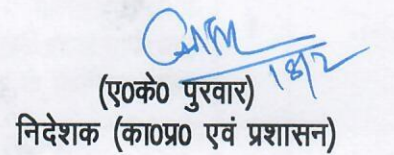 18/2
(ए०के० पुरवार)
निदेशक (का०प्र० एवं प्रशासन)